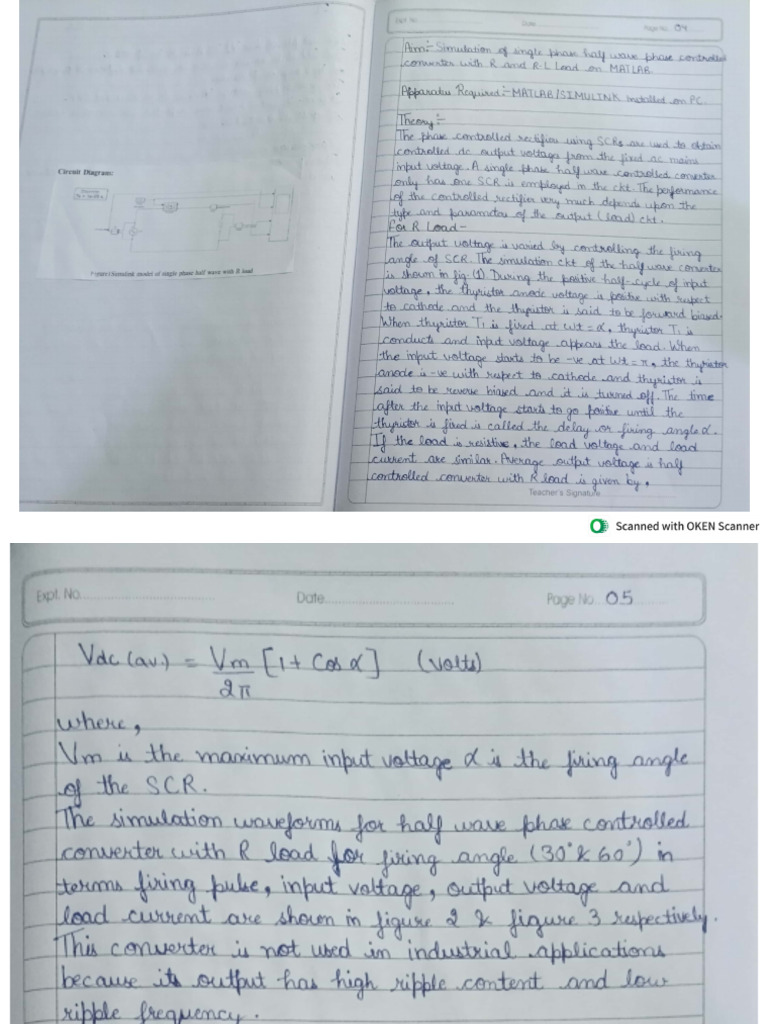 Circuit Diagram:
Figure:1 Simulink model of single phase half wave with R load
Expt. No.
Date
Page No. 04
Aim:- Simulation of single phase half wave phase controlled
converter with R and R-L Load on MATLAB.
Apparatus Required:- MATLAB/SIMULINK installed on PC.
Theory:-
The phase controlled rectifier using SCRs are used to obtain
controlled dc output voltage from the fixed ac mains
input voltage. A single phase half wave controlled converter
only has one SCR is employed in the ckt. The performance
of the controlled rectifier very much depends upon the
type and parameter of the output (load) ckt.
For R Load-
The output voltage is varied by controlling the firing
angle of SCR. The simulation ckt of the half wave converter
is shown in fig:(1). During the positive half-cycle of input
voltage, the thyristor anode voltage is positive with respect
to cathode and the thyristor is said to be forward biased.
When thyristor T1 is fired at wt = α, thyristor T1 is
conducts and input voltage appears the load. When
the input voltage starts to be -ve at wt = π, the thyristor
anode is -ve with respect to cathode and thyristor is
said to be reverse biased and it is turned off. The time
after the input voltage starts to go positive until the
thyristor is fired is called the delay or firing angle α.
If the load is resistive, the load voltage and load
current are similar. Average output voltage is half
controlled converter with R load is given by,
Teacher's Signature
Scanned with OKEN Scanner
Expl. No.
Date
Page No. 05
Vdc (av.) = Vm/2π [1 + Cos α] (volts)
where,
Vm is the maximum input voltage α is the firing angle
of the SCR.
The simulation waveforms for half wave phase controlled
converter with R load for firing angle (30° & 60°) in
terms firing pulse, input voltage, output voltage and
load current are shown in figure 2 & figure 3 respectively.
This converter is not used in industrial applications
because its output has high ripple content and low
ripple frequency.